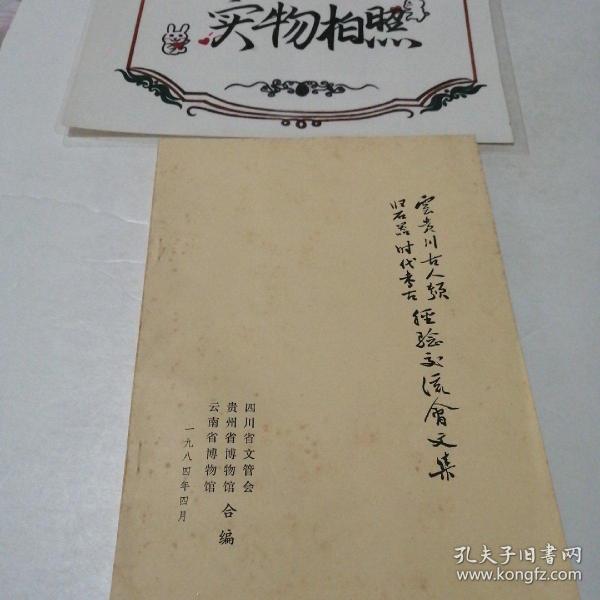 实物拍照
云贵川古人類
旧石器时代考古
經验交流會文集
四川省文管会
贵州省博物馆
云南省博物馆
合编
一九八四年四月
孔夫子旧书网
www.kongfz.com